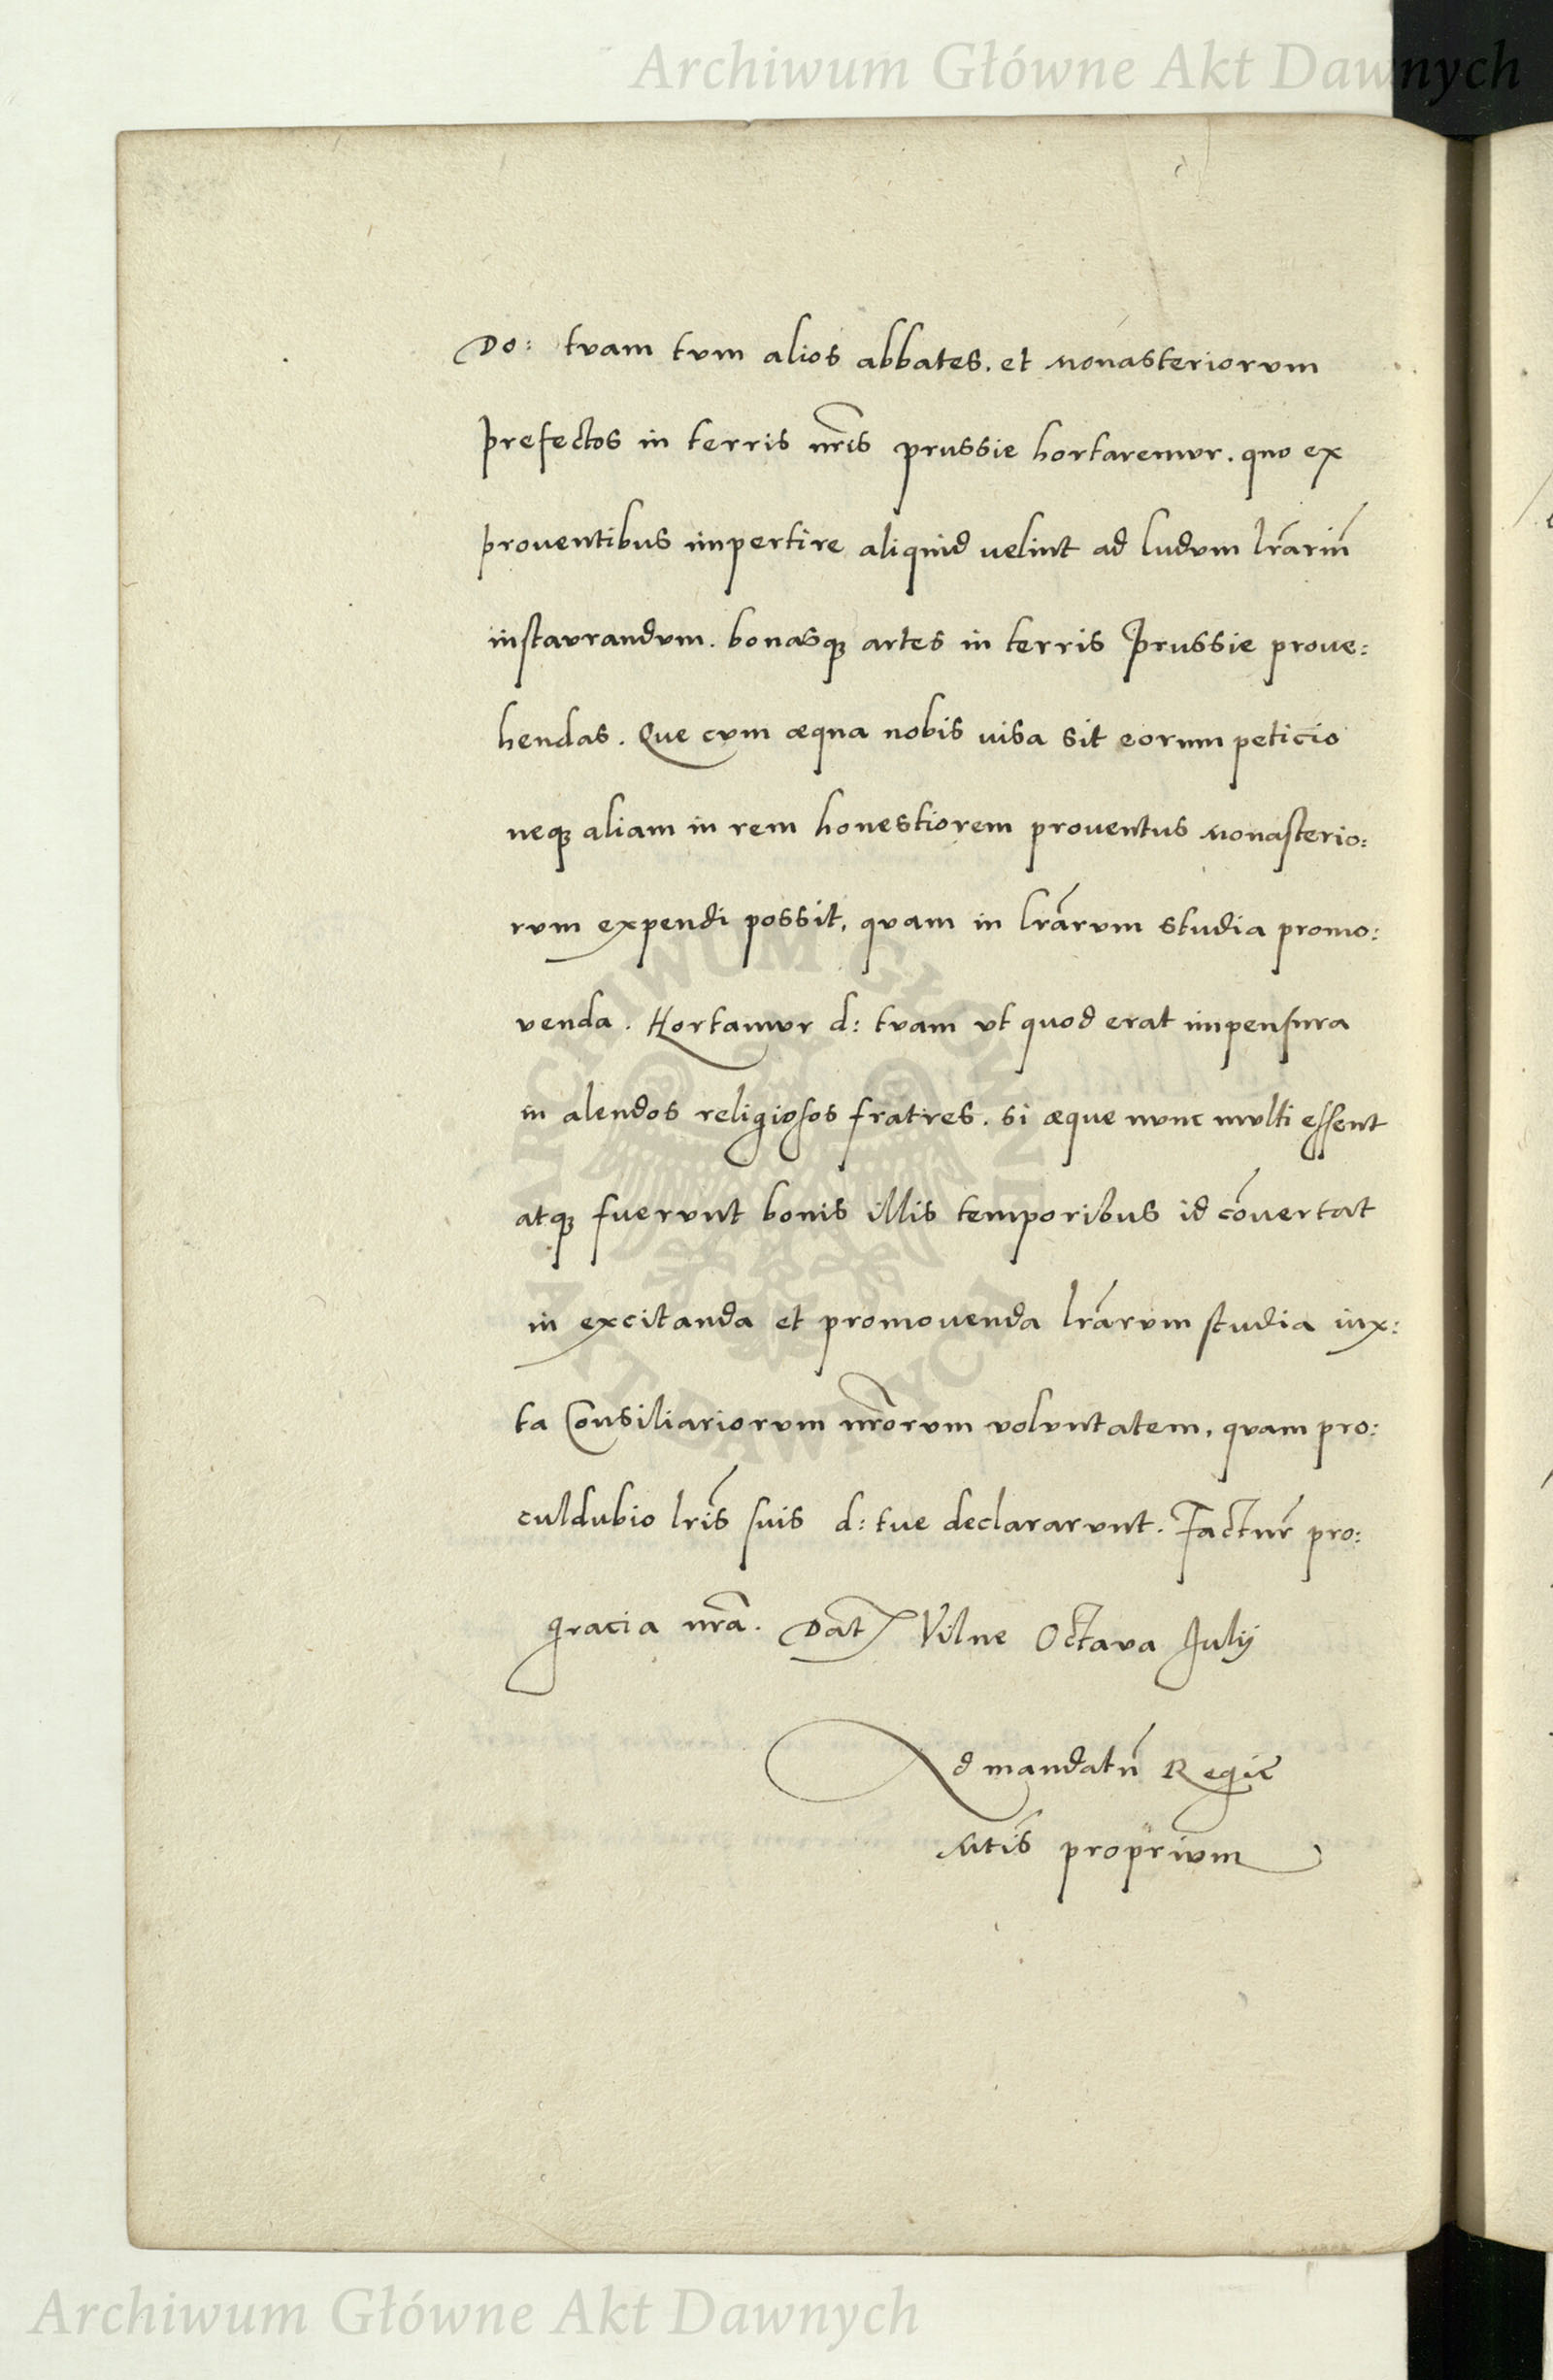 Archiwum Główne Akt Dawnych
Do: tvam tvm alios abbates. et monasteriorvm
prefectos in terris nr̃is prussie hortaremvr. quo ex
prouentibus impertire aliquid uelint ad ludvm lr̃ariũ
instavrandvm. bonasq; artes in terris Prussie proue:
hendas. Que cvm æqua nobis uisa sit eorum peticio
neq; aliam in rem honestiorem prouentus monasterio:
rvm expendi possit, qvam in lr̃arvm studia promo:
venda. Hortamvr d: tvam vt quod erat impensura
in alendos religiosos fratres. si æque nvnc mvlti essent
atq; fvervnt bonis illis temporibus id cõuertat
in excitanda et promouenda lr̃arvm studia iux:
ta Consiliariorvm nr̃orvm volvntatem, qvam pro:
culdubio lr̃is suis d: tve declararvnt. Factur̃ pro:
gracia nr̃a. Dat̃ Vilne Octava Julij
Ad mandatũ Regie
Mt̃is proprivm
ARCHIWUM GŁÓWNE AKT DAWNYCH
Archiwum Główne Akt Dawnych